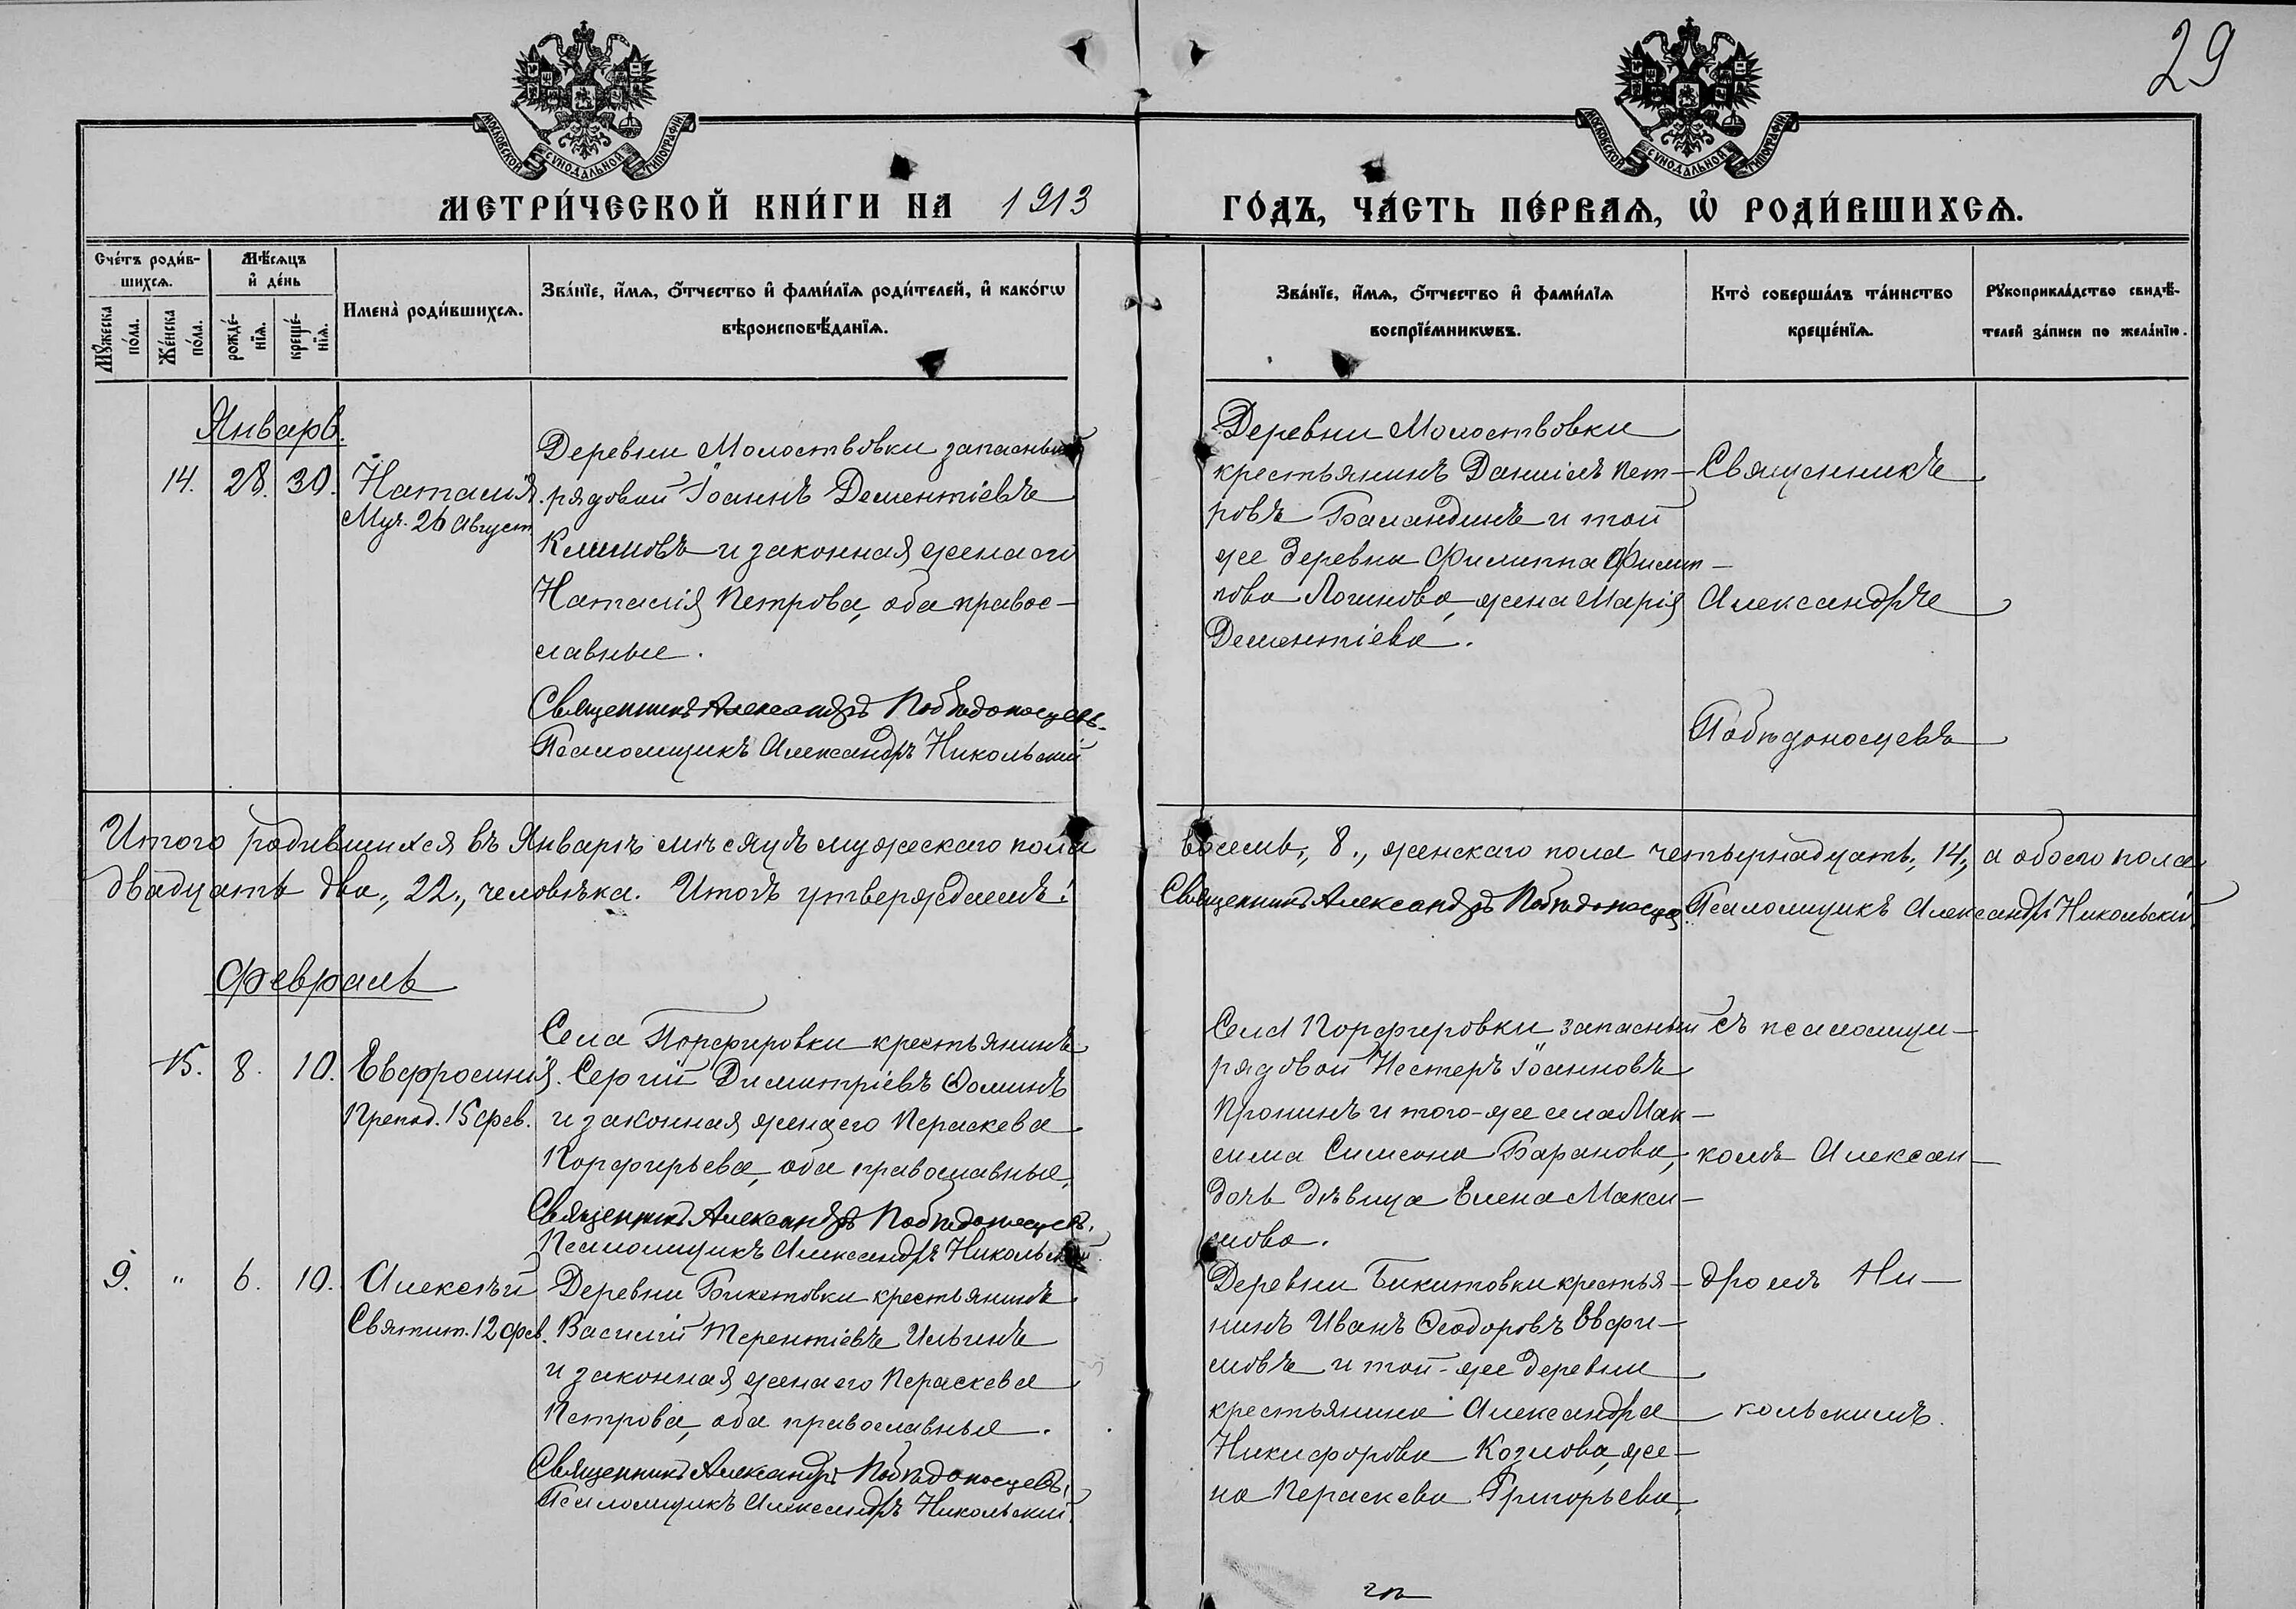 29
МОСКОВСКОЙ СѴНОДАЛЬНОЙ ТИПОГРАФІИ
МОСКОВСКОЙ СѴНОДАЛЬНОЙ ТИПОГРАФІИ
МЕТРИ́ЧЕСКОЙ КНИ́ГИ НА 1913 ГО́ДЪ, ЧА́СТЬ ПЕ́РВАѦ, Ѽ РОДИ́ВШИХСѦ.
Сче́тъ роди́в-
шихсѧ.
Мꙋ́жеска по́ла.
Же́нска по́ла.
Мѣ́сѧцъ
и҆ де́нь
рожде́-
нїѧ.
креще́-
нїѧ.
Имена̀ роди́вшихсѧ.
Зва́нїе, и҆́мѧ, ѻ҆́тчество и҆ фами́лїѧ роди́телей, и҆ како́гѡ
вѣроисповѣ́данїѧ.
Зва́нїе, и҆́мѧ, ѻ҆́тчество и҆ фами́лїѧ
воспрїе́мникѡвъ.
Кто̀ соверша́лъ та́инство
креще́нїѧ.
Рꙋкоприкла́дство свидѣ́-
телей за́писи по жела́нїю.
Январь.
14. 28. 30.
Наталія.
Муч. 26 Август
Деревни Молоствовки запасный
рядовой Іоаннъ Дементіевъ
Климовъ и законная жена его
Наталія Петрова, оба право-
славные.
Священникъ Александръ Побѣдоносцевъ.
Псаломщикъ Александръ Никольскій
Деревни Молоствовки
крестьянинъ Даніилъ Пет-
ровъ Баландинъ и той
же деревни Филиппа Филип-
пова Логинова, жена Марія
Дементіева.
Священникъ
Александръ
Побѣдоносцевъ
Итого родившихся въ Январѣ мѣсяцѣ мужескаго пола восемь, 8., женскаго пола четырнадцать, 14, а обоего пола
двадцать два, 22., человѣка. Итогъ утверждаемъ: Священникъ Александръ Побѣдоносцев Псаломщикъ Александръ Никольскій
Февраль
15. 8. 10.
Евфросинія.
Препод. 15 фев.
Села Порфировки крестьянинъ
Сергій Димитріевъ Ѳоминъ
и законная жена его Параскева
Порфирьева, оба православные,
Священникъ Александръ Побѣдоносцевъ.
Псаломщикъ Александръ Никольскій
Села Порфировки запасный
рядовой Нестеръ Іоанновъ
Пронинъ и того-же села Мак-
сима Симеона Баранова,
дочь дѣвица Елена Макси-
мова.
съ псаломщи-
комъ Алексан-
9. " 6. 10.
Алексѣй
Святит. 12 фев.
Деревни Бикетовки крестьянинъ
Василій Терентіевъ Ильинъ
и законная жена его Параскева
Петрова, оба православные.
Священникъ Александръ Побѣдоносцевъ,
Псаломщикъ Александръ Никольскій.
Деревни Бикитовки крестья-
нинъ Иванъ Ѳеодоровъ Евфи-
мовъ и той-же деревни
крестьянина Александра
Никифорова Козлова, же-
на Параскева Григорьева,
дромъ Ни-
кольскимъ.